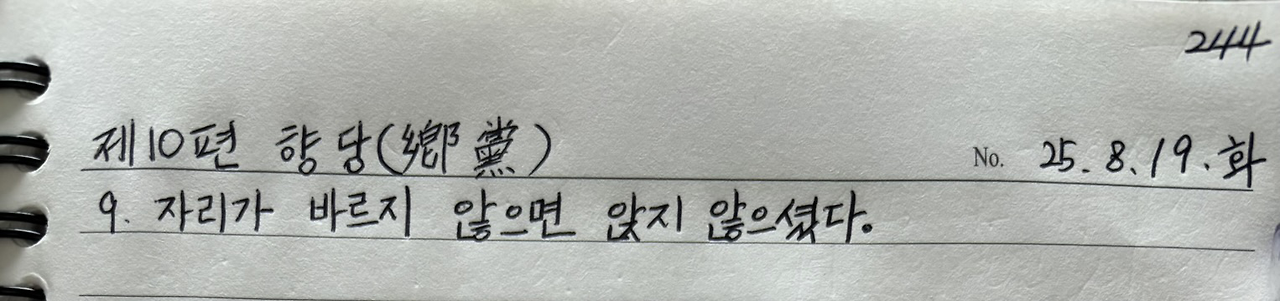 244
제10편 향당(鄕黨)
No. 25.8.19.화
9. 자리가 바르지 않으면 앉지 않으셨다.